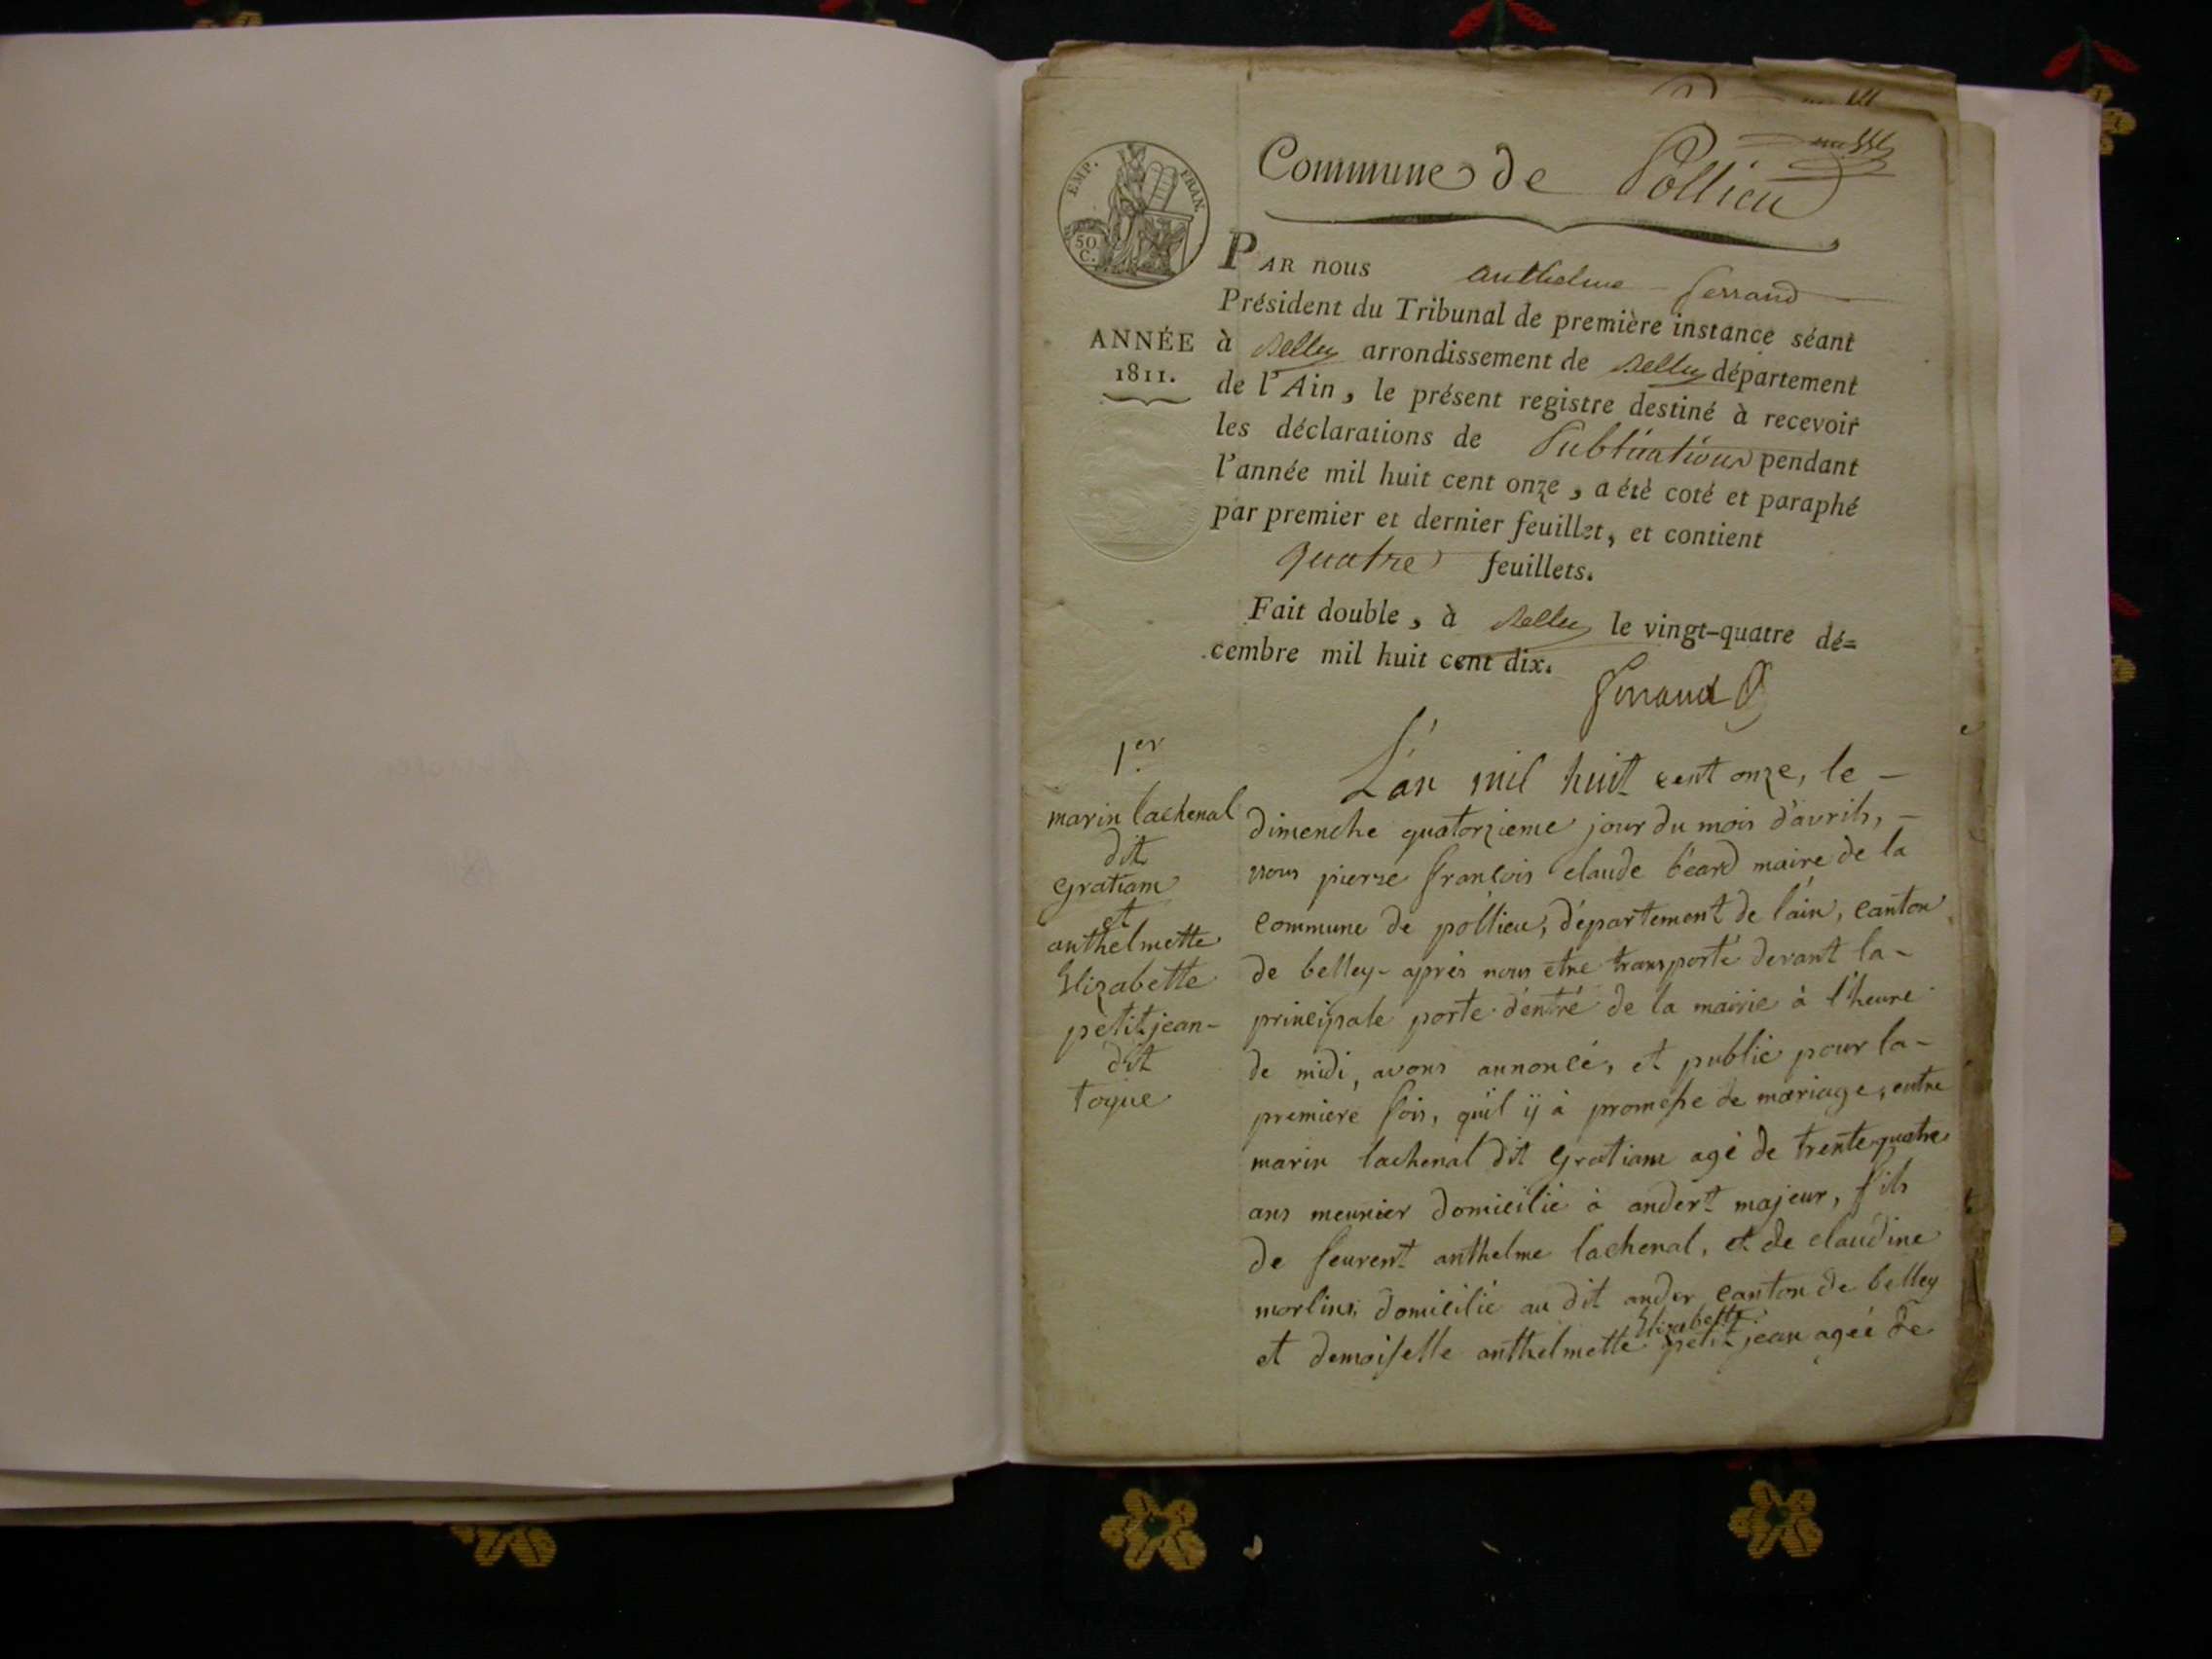 Commune de Pollieu
EMP. FRAN.
50 C.
PAR nous anthelme ferrand
Président du Tribunal de première instance séant
ANNÉE
1811.
à Belley arrondissement de Belley département
de l'Ain, le présent registre destiné à recevoir
les déclarations de Publications pendant
l'année mil huit cent onze, a été coté et paraphé
par premier et dernier feuillet, et contient
quatre feuillets.
Fait double, à Belley le vingt-quatre dé=
cembre mil huit cent dix.
ferrand
1er
marin lachenal
dit
gratiam
et
anthelmette
Elizabette
petitjean-
dit
toque
L'an mil huit cent onze, le -
dimenche quatorzieme jour du mois d'avrils, -
nous pierre francois claude béard maire de la
commune de pollieu, département de l'ain, canton
de belley- après nous etre transporté devant la-
principale porte d'entré de la mairie à l'heure
de midi, avons annoncé, et publié pour la-
premiere fois, qu'il ij à promesse de mariage, entre
marin lachenal dit gratiam agé de trente quatre
ans meunier domicilié à andert majeur, fils
de feurent anthelme lachenal, et de claudine
morlins, domicilié au dit ander canton de belley
et demoiselle anthelmette Elizabette petit jean agéé de